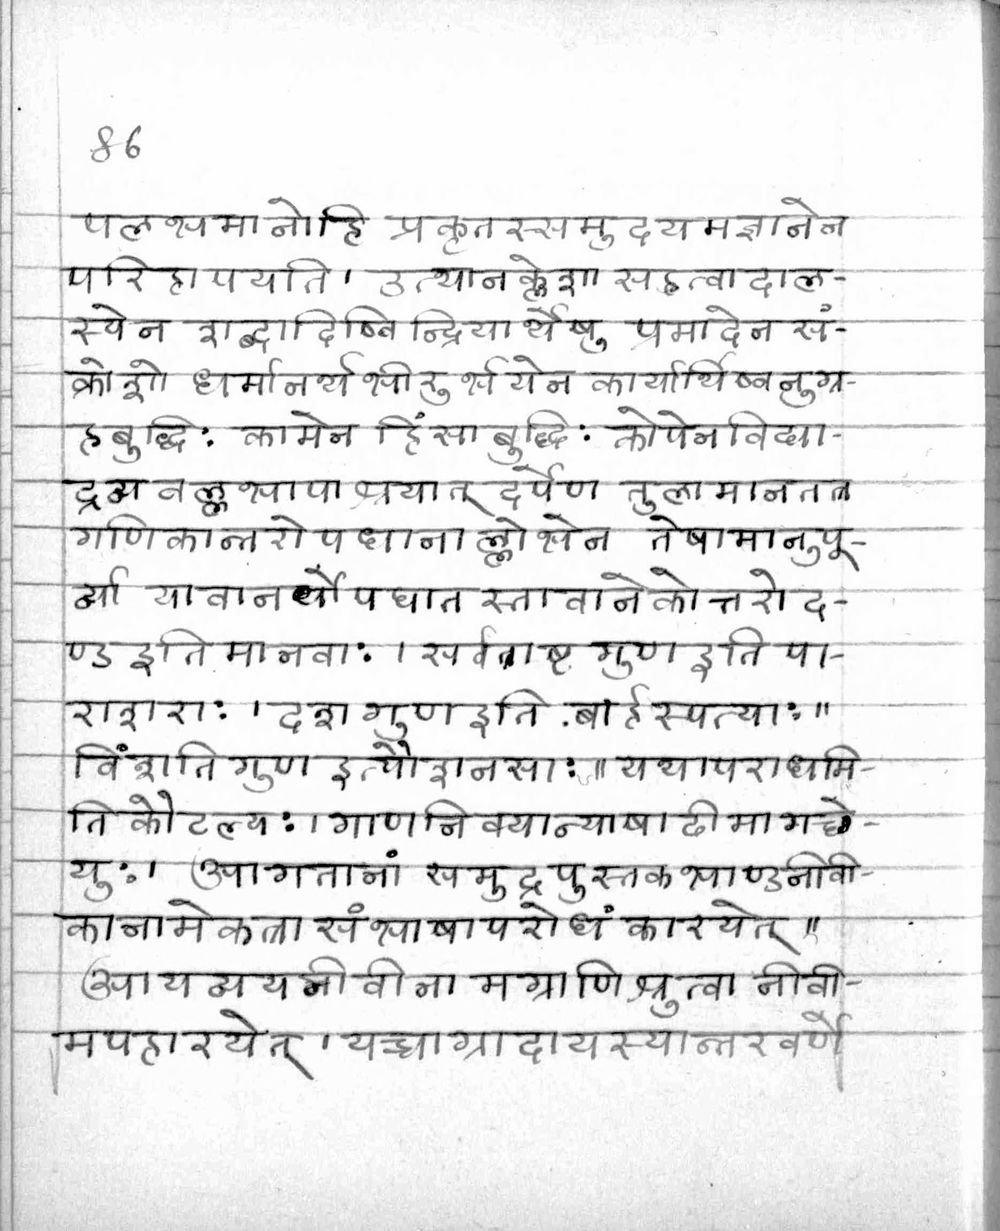 86
पलभ्यमानोहि प्रकृतस्समुदयमज्ञानेन
परिहापयति। उत्थानक्लेशासहत्वादाल-
स्येन शब्दादिष्विन्द्रियार्थेषु प्रमादेन सं-
क्रोशो धर्मानर्थभीरुर्भयेन कार्यार्थिष्वनुग्र-
हबुद्धिः कामेन हिंसाबुद्धिः कोपेनविद्या-
द्रव्यवल्लभापाश्रयात् दर्पेण तुलामानतत
गणिकान्तरोपधानाल्लोभेन तेषामानुपू-
र्व्या यावानर्थोपघातस्तावानेकोत्तरोद-
ण्ड इति मानवाः। सर्वत्राष्टगुण इति पा-
राशराः। दशगुण इति बार्हस्पत्याः॥
विंशतिगुण इत्यौशनसाः॥ यथापराधमि-
ति कौटल्यः। गाणनिवयान्याषाढीमागछे-
युः। आगतानां समुद्रपुस्तकभाण्डनीवी-
कानामेकत्रासंभाषापरोधं कारयेत्॥
आयव्ययनीवीनामग्राणि श्रुत्वा नीवी-
मपहारयेत्। यच्चाग्रादायस्यान्तरवर्णे